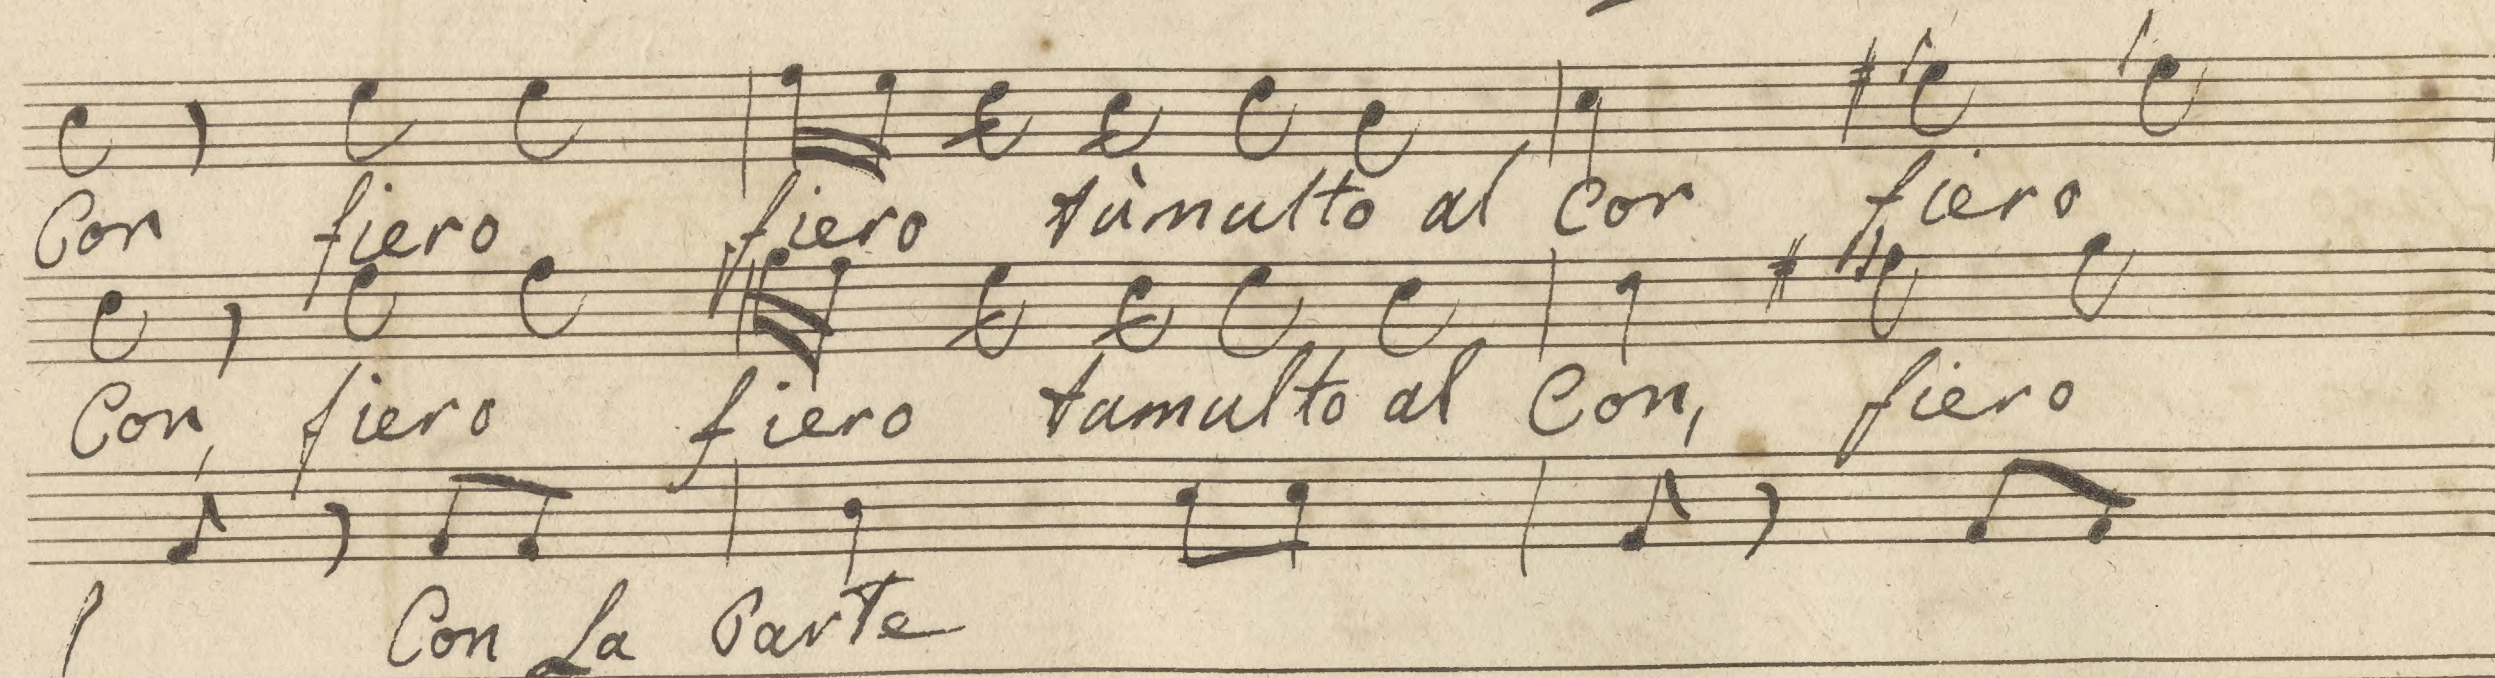 Con fiero fiero tùmulto al cor fiero
Con, fiero fiero tumulto al Con, fiero
Con La Parte